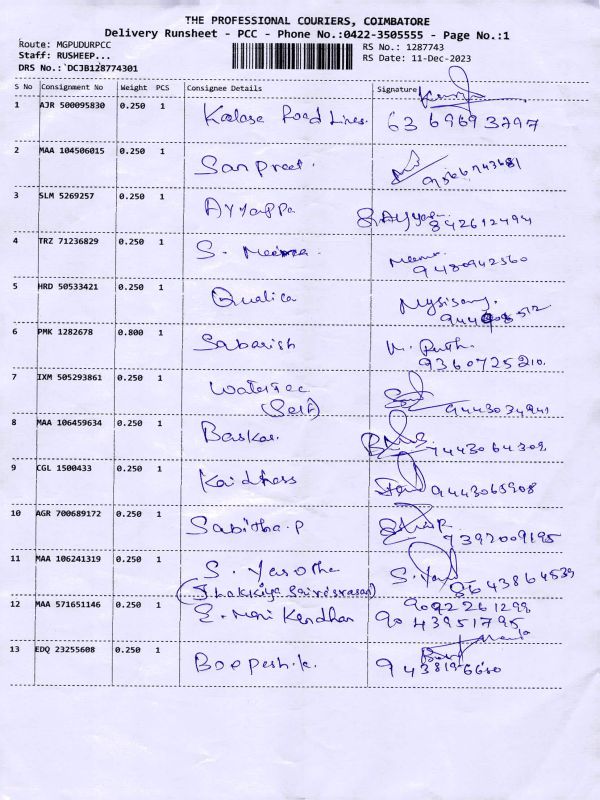 THE PROFESSIONAL COURIERS, COIMBATORE
Delivery Runsheet - PCC - Phone No.:0422-3505555 - Page No.:1
Route: MGPUDURPCC RS No.: 1287743
Staff: RUSHEEP... RS Date: 11-Dec-2023
DRS No.: DCJB128774301
S No Consignment No Weight PCS Consignee Details Signature
1 AJR 500095830 0.250 1 Kalase Road Lines.
63 69693797
2 MAA 104506015 0.250 1 Sanpreet.
9566743681
3 SLM 5269257 0.250 1 Ayyappa
842612494
4 TRZ 71236829 0.250 1 S. Meena Meena
9480942560
5 HRD 50533421 0.250 1 Qualica
6 PMK 1282678 0.800 1 Sabarish
9360725210.
7 IXM 505293861 0.250 1 Watertec
(Self) 9443034941
8 MAA 106459634 0.250 1 Baskar
9443064309
9 CGL 1500433 0.250 1 Kaidhass
9443065908
10 AGR 700689172 0.250 1 Sabitha.P
7397009195
11 MAA 106241319 0.250 1 S. Yasotha
8643864539
12 MAA 571651146 0.250 1 E. Mani Kandhan
9092261298
9043951795
13 EDQ 23255608 0.250 1 Boopesh.k.